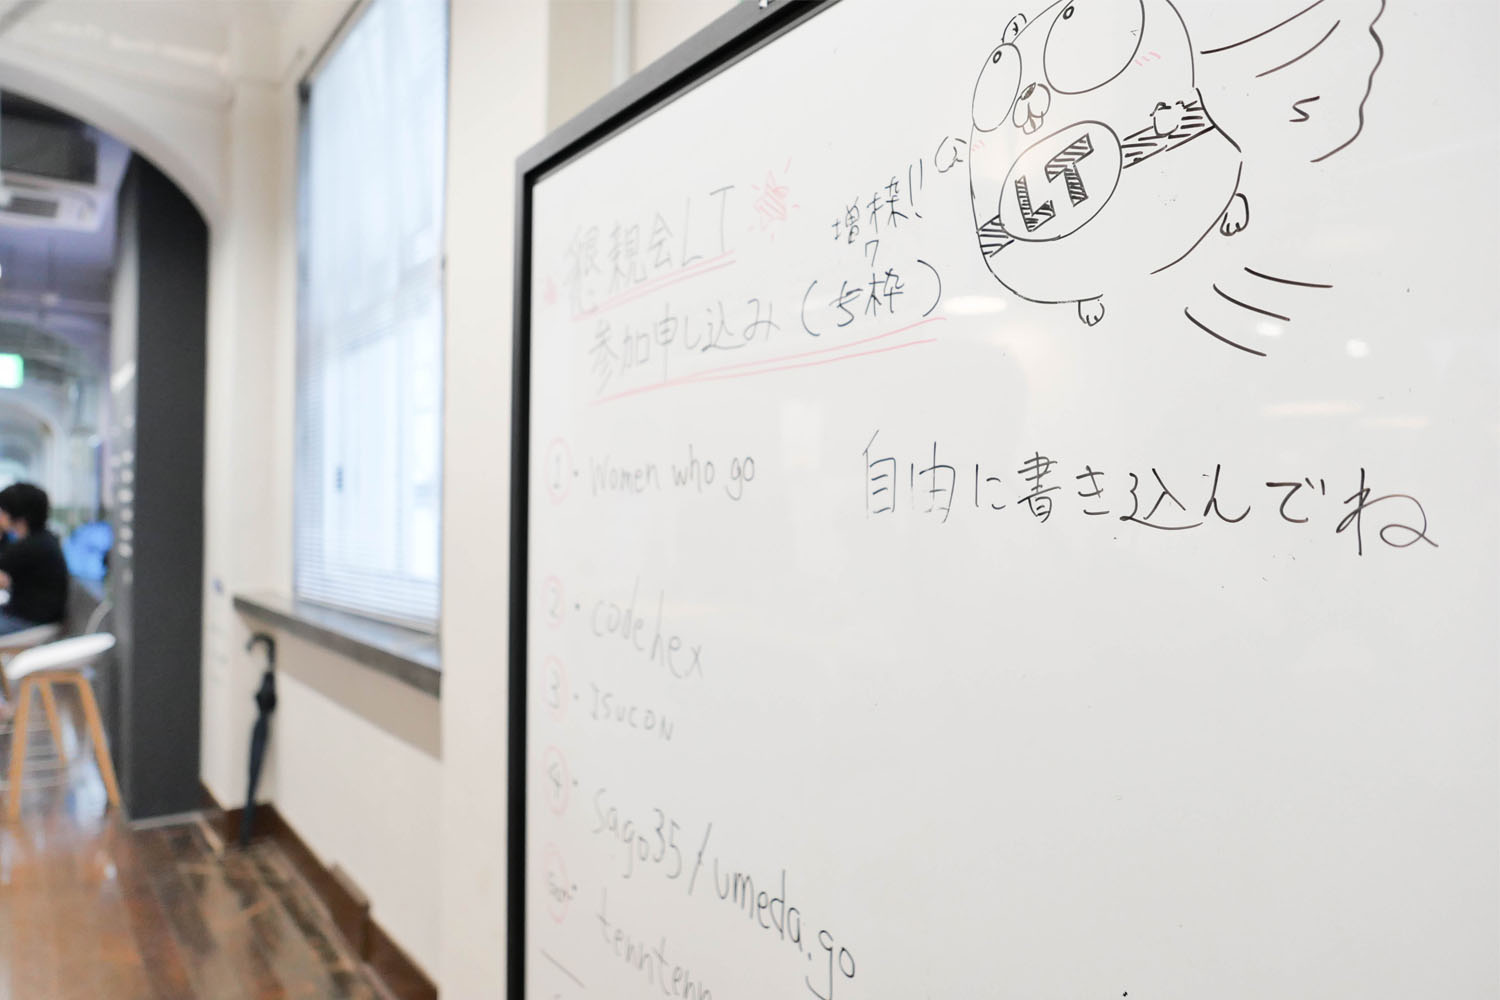 懇親会LT
増枠!!
7
参加申し込み(5枠)
LT
自由に書き込んでね
① ・ Women who go
② ・ codehex
③ ・ ISUCON
④ ・ sago35/umeda.go
tenntenn